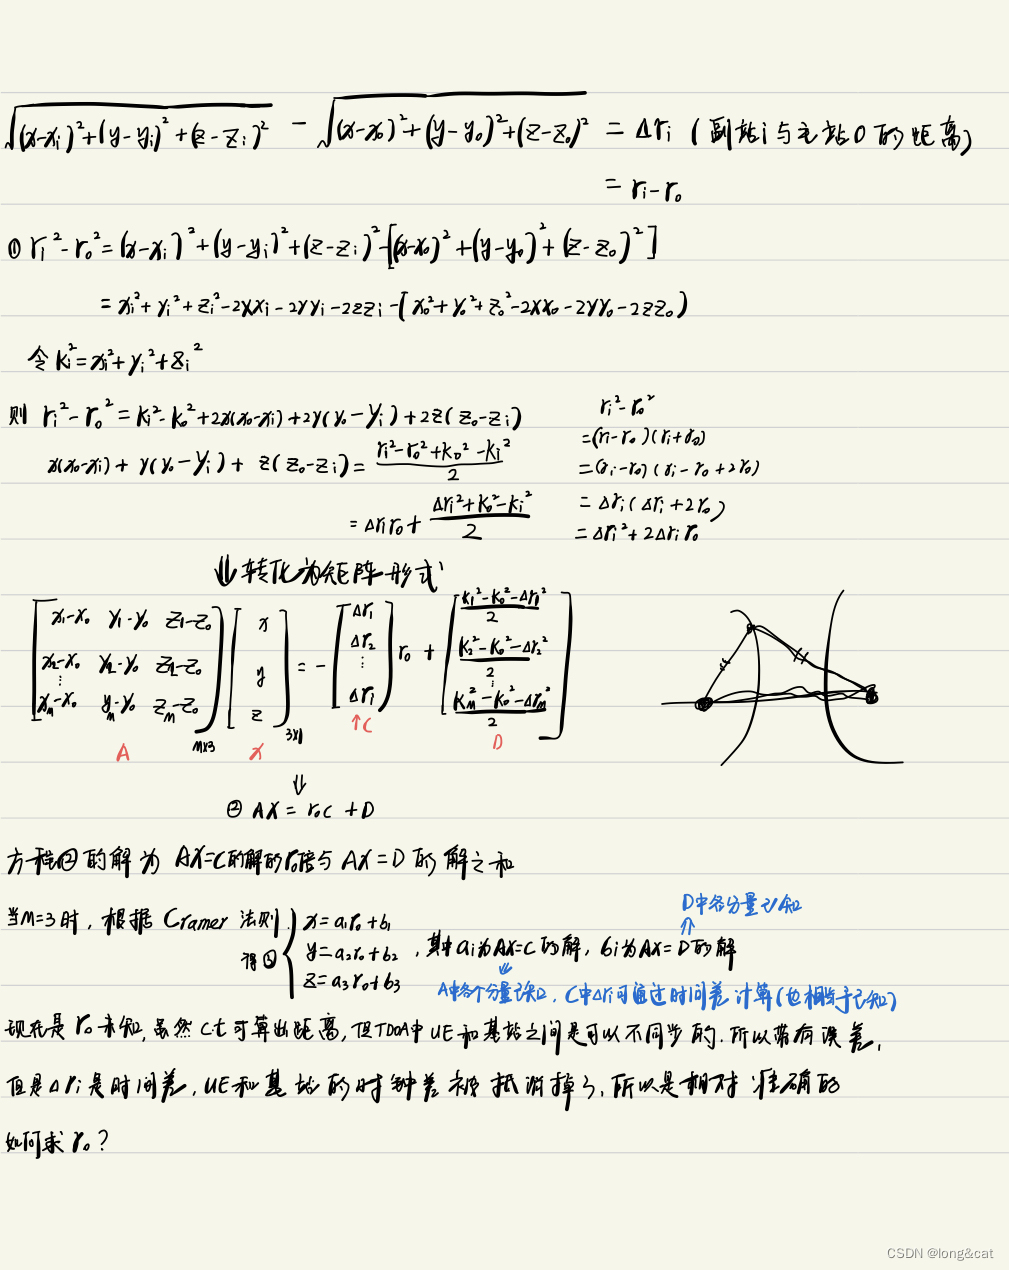 √(x-xᵢ)²+(y-yᵢ)²+(z-zᵢ)² - √(x-x₀)²+(y-y₀)²+(z-z₀)² = Δrᵢ (副站i与主站0的距离)
= rᵢ-r₀
① rᵢ²-r₀²=(x-xᵢ)²+(y-yᵢ)²+(z-zᵢ)²-[(x-x₀)²+(y-y₀)²+(z-z₀)²]
= xᵢ²+yᵢ²+zᵢ²-2xxᵢ-2yyᵢ-2zzᵢ-(x₀²+y₀²+z₀²-2xx₀-2yy₀-2zz₀)
令 kᵢ²=xᵢ²+yᵢ²+zᵢ²
则 rᵢ²-r₀²=kᵢ²-k₀²+2x(x₀-xᵢ)+2y(y₀-yᵢ)+2z(z₀-zᵢ)
x(x₀-xᵢ)+y(y₀-yᵢ)+z(z₀-zᵢ)= (rᵢ²-r₀²+k₀²-kᵢ²)/2
= Δrᵢr₀+ (Δrᵢ²+k₀²-kᵢ²)/2
rᵢ²-r₀²
=(rᵢ-r₀)(rᵢ+r₀)
=(rᵢ-r₀)(rᵢ-r₀+2r₀)
= Δrᵢ(Δrᵢ+2r₀)
= Δrᵢ²+2Δrᵢr₀
⇓转化为矩阵形式
[x₁-x₀ y₁-y₀ z₁-z₀ [x [Δr₁ [(k₁²-k₀²-Δr₁²)/2
x₂-x₀ y₂-y₀ z₂-z₀ y = - Δr₂ r₀ + (k₂²-k₀²-Δr₂²)/2
⋮ ⋮ ⋮
x_M-x₀ y_M-y₀ z_M-z₀] z] Δrᵢ] (k_M²-k₀²-Δr_M²)/2]
M×3 3×1
A X ↑C D
⇓
② AX = r₀C + D
方程②的解为 AX=C的解的r₀倍与AX=D的解之和
D中各分量已知
⇑
当M=3时,根据Cramer法则
得③ { x=a₁r₀+b₁
y=a₂r₀+b₂ ,其中aᵢ为AX=C的解,bᵢ为AX=D的解
z=a₃r₀+b₃
⇓
A中各个分量已知,C中Δrᵢ可通过时间差计算(也相当于已知)
现在是r₀未知,虽然c·t可算出距离,但TDOA中UE和基站之间是可以不同步的.所以带有误差,
但是Δrᵢ是时间差,UE和基站的时钟差被抵消掉了,所以是相对准确的
如何求r₀?
CSDN @long&cat